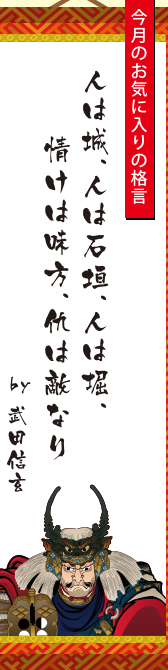 今月のお気に入りの格言
人は城、人は石垣、人は堀、
情けは味方、仇は敵なり
by 武田信玄